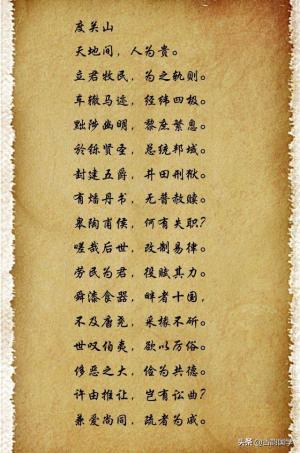 度关山
天地间，人为贵。
立君牧民，为之轨则。
车辙马迹，经纬四极。
黜陟幽明，黎庶繁息。
於铄贤圣，总统邦域。
封建五爵，井田刑狱。
有燔丹书，无普赦赎。
皋陶甫侯，何有失职？
嗟哉后世，改制易律。
劳民为君，役赋其力。
舜漆食器，畔者十国，
不及唐尧，采椽不斫。
世叹伯夷，欲以厉俗。
侈恶之大，俭为共德。
许由推让，岂有讼曲？
兼爱尚同，疏者为戚。
头条@古韵国学